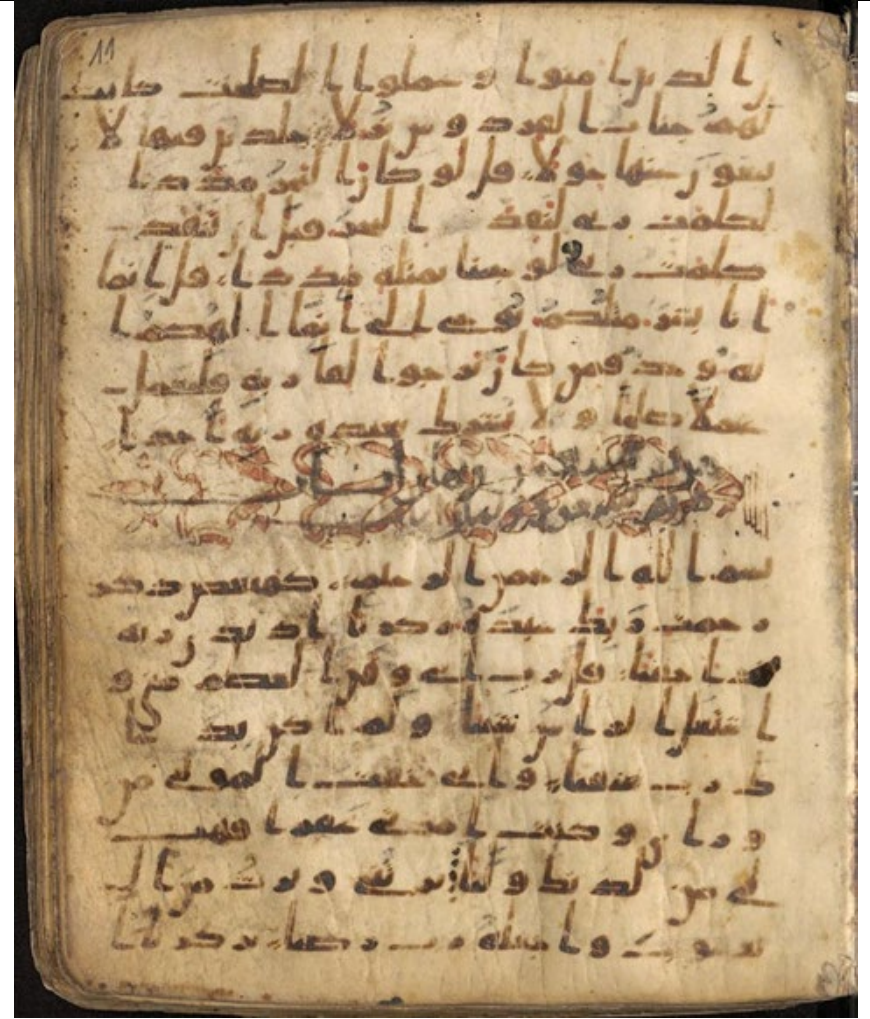 ا لذ ين ا منوا و عملوا ا لصلحت كانت
لهم جنات ا لفرد و س نزلا خلد ين فيها لا
يبغو ن عنها حولا قل لو كا ن ا لبحر مدد ا
لكلمت ر بي لنفد ا لبحر قبل ا ن تنفد
كلمت ر بي لو جئنا بمثله مدد ا قل ا نما
ا نا بشر مثلكم يوحى ا لي ا نما ا لهكم ا
له و حد فمن كا ن ير جوا لقا ر به فليعمل
عملا صلحا و لا يشرك بعبد ه ر به ا حد ا
بسم ا لله ا لر حمن ا لر حيم كهيعص ذ كر
ر حمت ر بك عبد ه ز كر يا ا ذ ند ى ر به
ند ا خفيا قل ر ب ا ني و هن ا لعظم مني و
ا شتعل ا لر ا س شيبا و لم ا كن بد عا
ك ر ب شقيا و ا ني خفت ا لمولي من
و ر ا ي و كنت ا مر ا تي عقر ا فهب
لي من لد نك و ليا ير ثني و ير ث من ا ل
يعقو ب و ا جعله ر ب ر ضيا يز كر يا ا